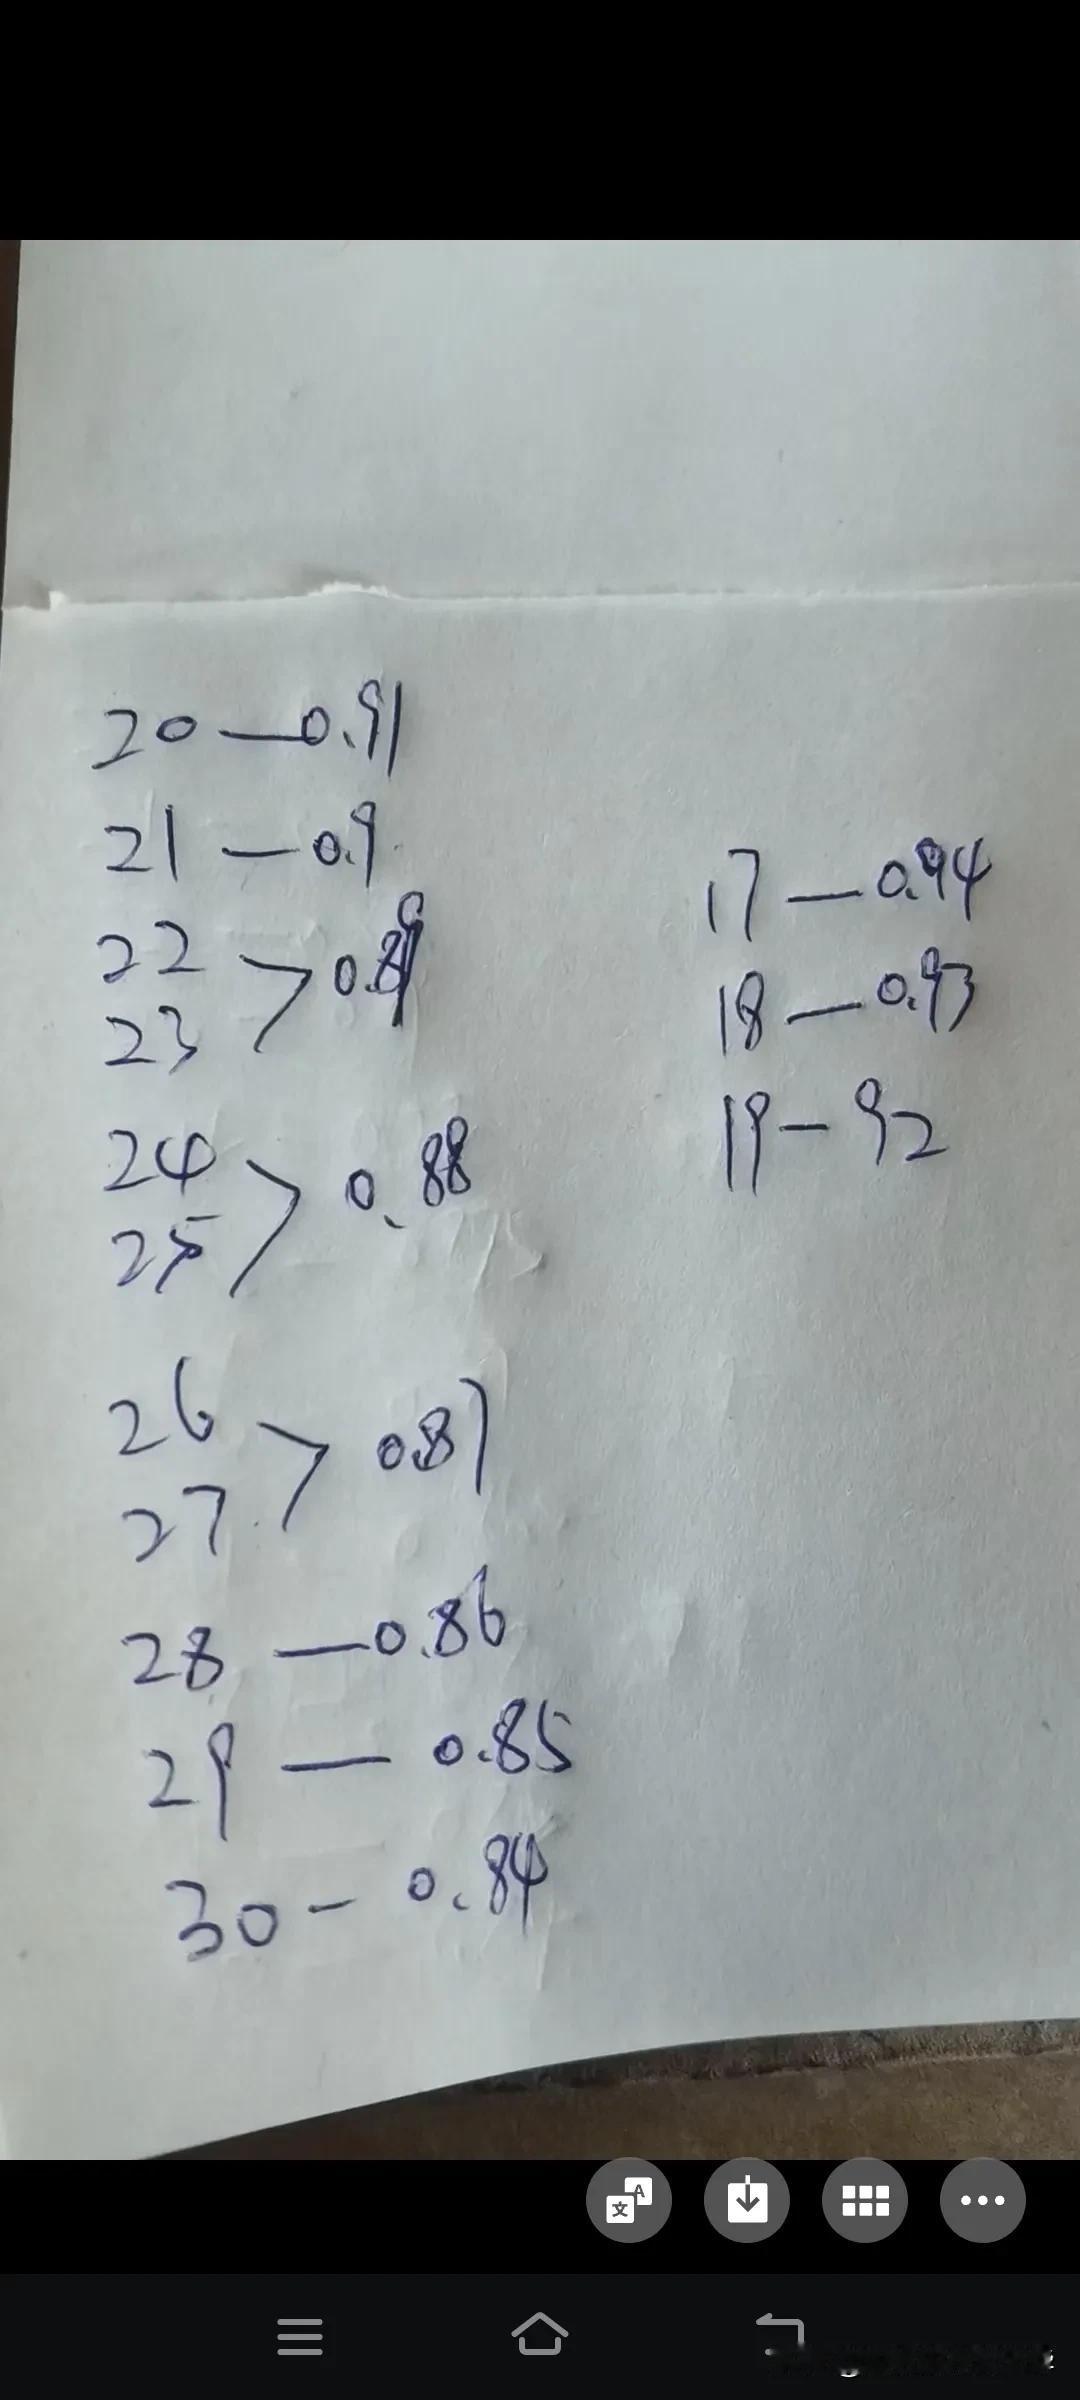 20 — 0.91
21 — 0.9
22
23 > 0.89
24
25 > 0.88
26
27 > 0.87
28 — 0.86
29 — 0.85
30 - 0.84
17 — 0.94
18 — 0.93
19 - 92
文A